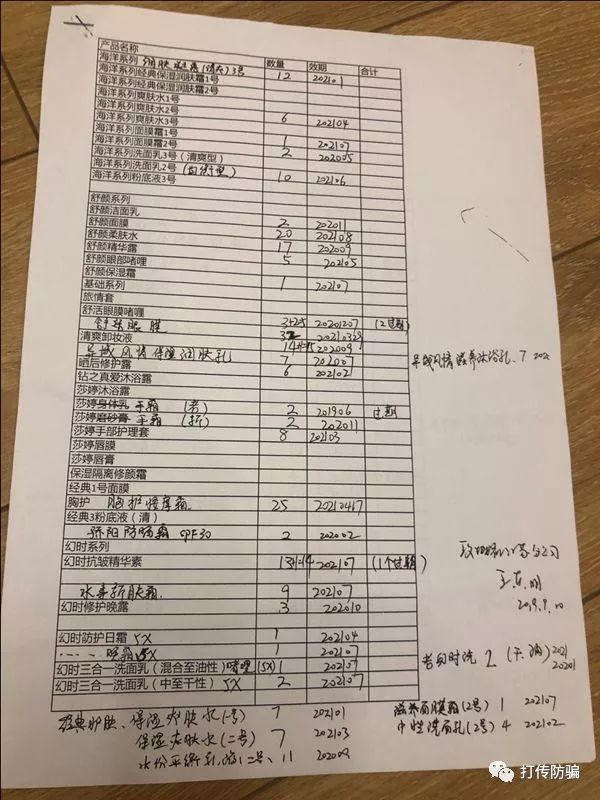 产品名称 数量 效期 合计
海洋系列 3号
海洋系列经典保湿润肤霜1号 12 202101
海洋系列经典保湿润肤霜2号
海洋系列爽肤水1号
海洋系列爽肤水2号
海洋系列爽肤水3号 6 202104
海洋系列面膜霜1号
海洋系列面膜霜2号 1 202107
海洋系列洗面乳3号（清爽型） 2 202005
海洋系列洗面乳2号（均衡型）
海洋系列粉底液3号 10 202106
舒颜系列
舒颜洁面乳
舒颜面膜 2 202011
舒颜柔肤水 20 202108
舒颜精华露 17 202009
舒颜眼部啫喱 5 202105
舒颜保湿霜
基础系列 1 202107
旅情套
舒活眼膜啫喱
眼膜 20201207 (2过期)
清爽卸妆液
异域风情保湿润肤乳 202009
晒后修护露 7 202007
钻之真爱沐浴露 6 202102
异域风情滋养沐浴乳. 7
莎婷沐浴露
莎婷身体乳 手霜 (老) 2 201906 过期
莎婷磨砂膏 手霜 (新) 2 202011
莎婷手部护理套 8 202103
莎婷唇膜
莎婷唇膏
保湿隔离修颜霜
经典1号面膜
胸护 胸护按摩霜 25 20210417
经典3粉底液（清）
骄阳防晒霜 SPF30 2 202002
幻时系列
幻时抗皱精华素 202107 (1个过期)
新肤霜. 9 202107
幻时修护晚露 3 202010
2019.9.10
幻时防护日霜 5X 1 202104
晚霜 5X 1 202107
老幻时洗 2
幻时三合一洗面乳（混合至油性）啫喱 (5X) 1 202107
幻时三合一洗面乳（中至干性） 5X 2 202107
经典护肤、保湿爽肤水(1号) 7 202101
滋养面膜霜(2号) 1 202107
保湿爽肤水(二号) 7 202103
中性洗面乳(2号) 4 202102
水份平衡 二号、 11 202009
打传防骗